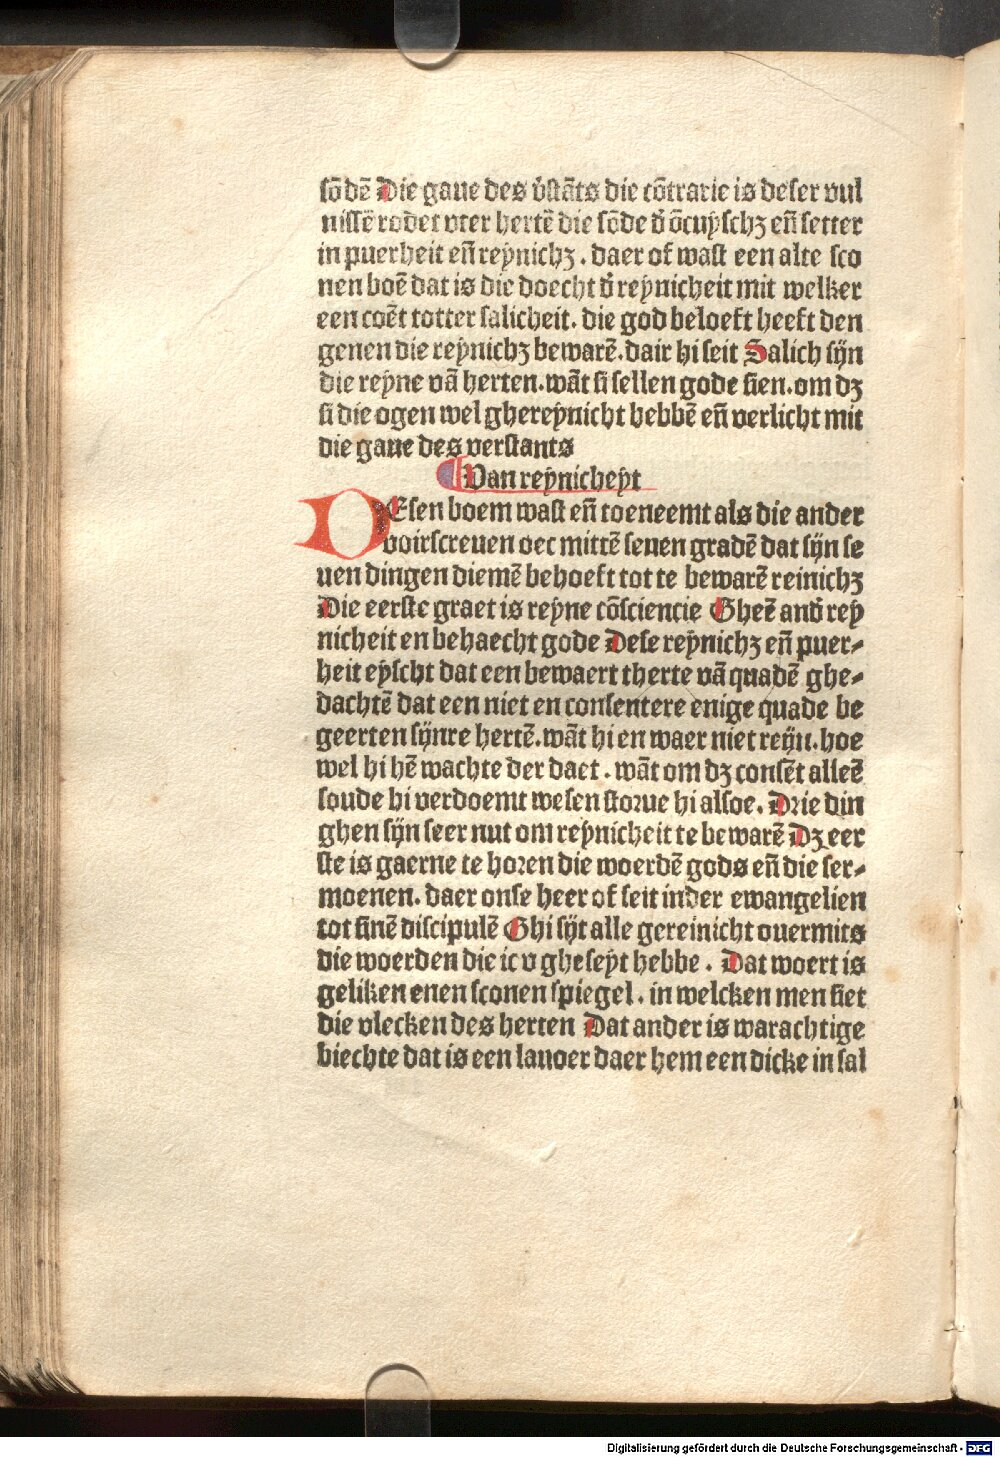 sōdē Die gaue des v̄stāts die cōtrarie is deser vul
nissē rodet vter hertē die sōde d̄ ōcuyschꝫ eñ setter
in puerheit eñ reynichꝫ. daer of wast een alte sco
nen boē dat is die doecht d̄ reynicheit mit welker
een coēt totter salicheit. die god beloeft heeft den
genen die reynichꝫ bewarē. dair hi seit Salich sijn
die reyne vā herten. wāt si sellen gode sien. om dꝫ
si die ogen wel ghereynicht hebbē eñ verlicht mit
die gaue des verstants
¶ Van reynicheyt
DEsen boem wast eñ toeneemt als die ander
voirscreuen oec mittē seuen gradē dat sijn se
uen dingen diemē behoeft tot te bewarē reinichꝫ
Die eerste graet is reyne cōsciencie Gheē and̄ rey
nicheit en behaecht gode Dese reynichꝫ eñ puer-
heit eyscht dat een bewaert therte vā quadē ghe-
dachtē dat een niet en consentere enige quade be
geerten sijnre hertē. wāt hi en waer niet reyn. hoe
wel hi hē wachte der daet. wāt om dꝫ consēt alleē
soude hi verdoemt wesen storue hi alsoe. Drie din
ghen sijn seer nut om reynicheit te bewarē Dꝫ eer
ste is gaerne te horen die woerdē gods eñ die ser-
moenen. daer onse heer of seit inder ewangelien
tot sinē discipulē Ghi sijt alle gereinicht ouermits
die woerden die ic v gheseyt hebbe. Dat woert is
geliken enen sconen spiegel. in welcken men siet
die vlecken des herten Dat ander is warachtige
biechte dat is een lauoer daer hem een dicke in sal
Digitalisierung gefördert durch die Deutsche Forschungsgemeinschaft - DFG